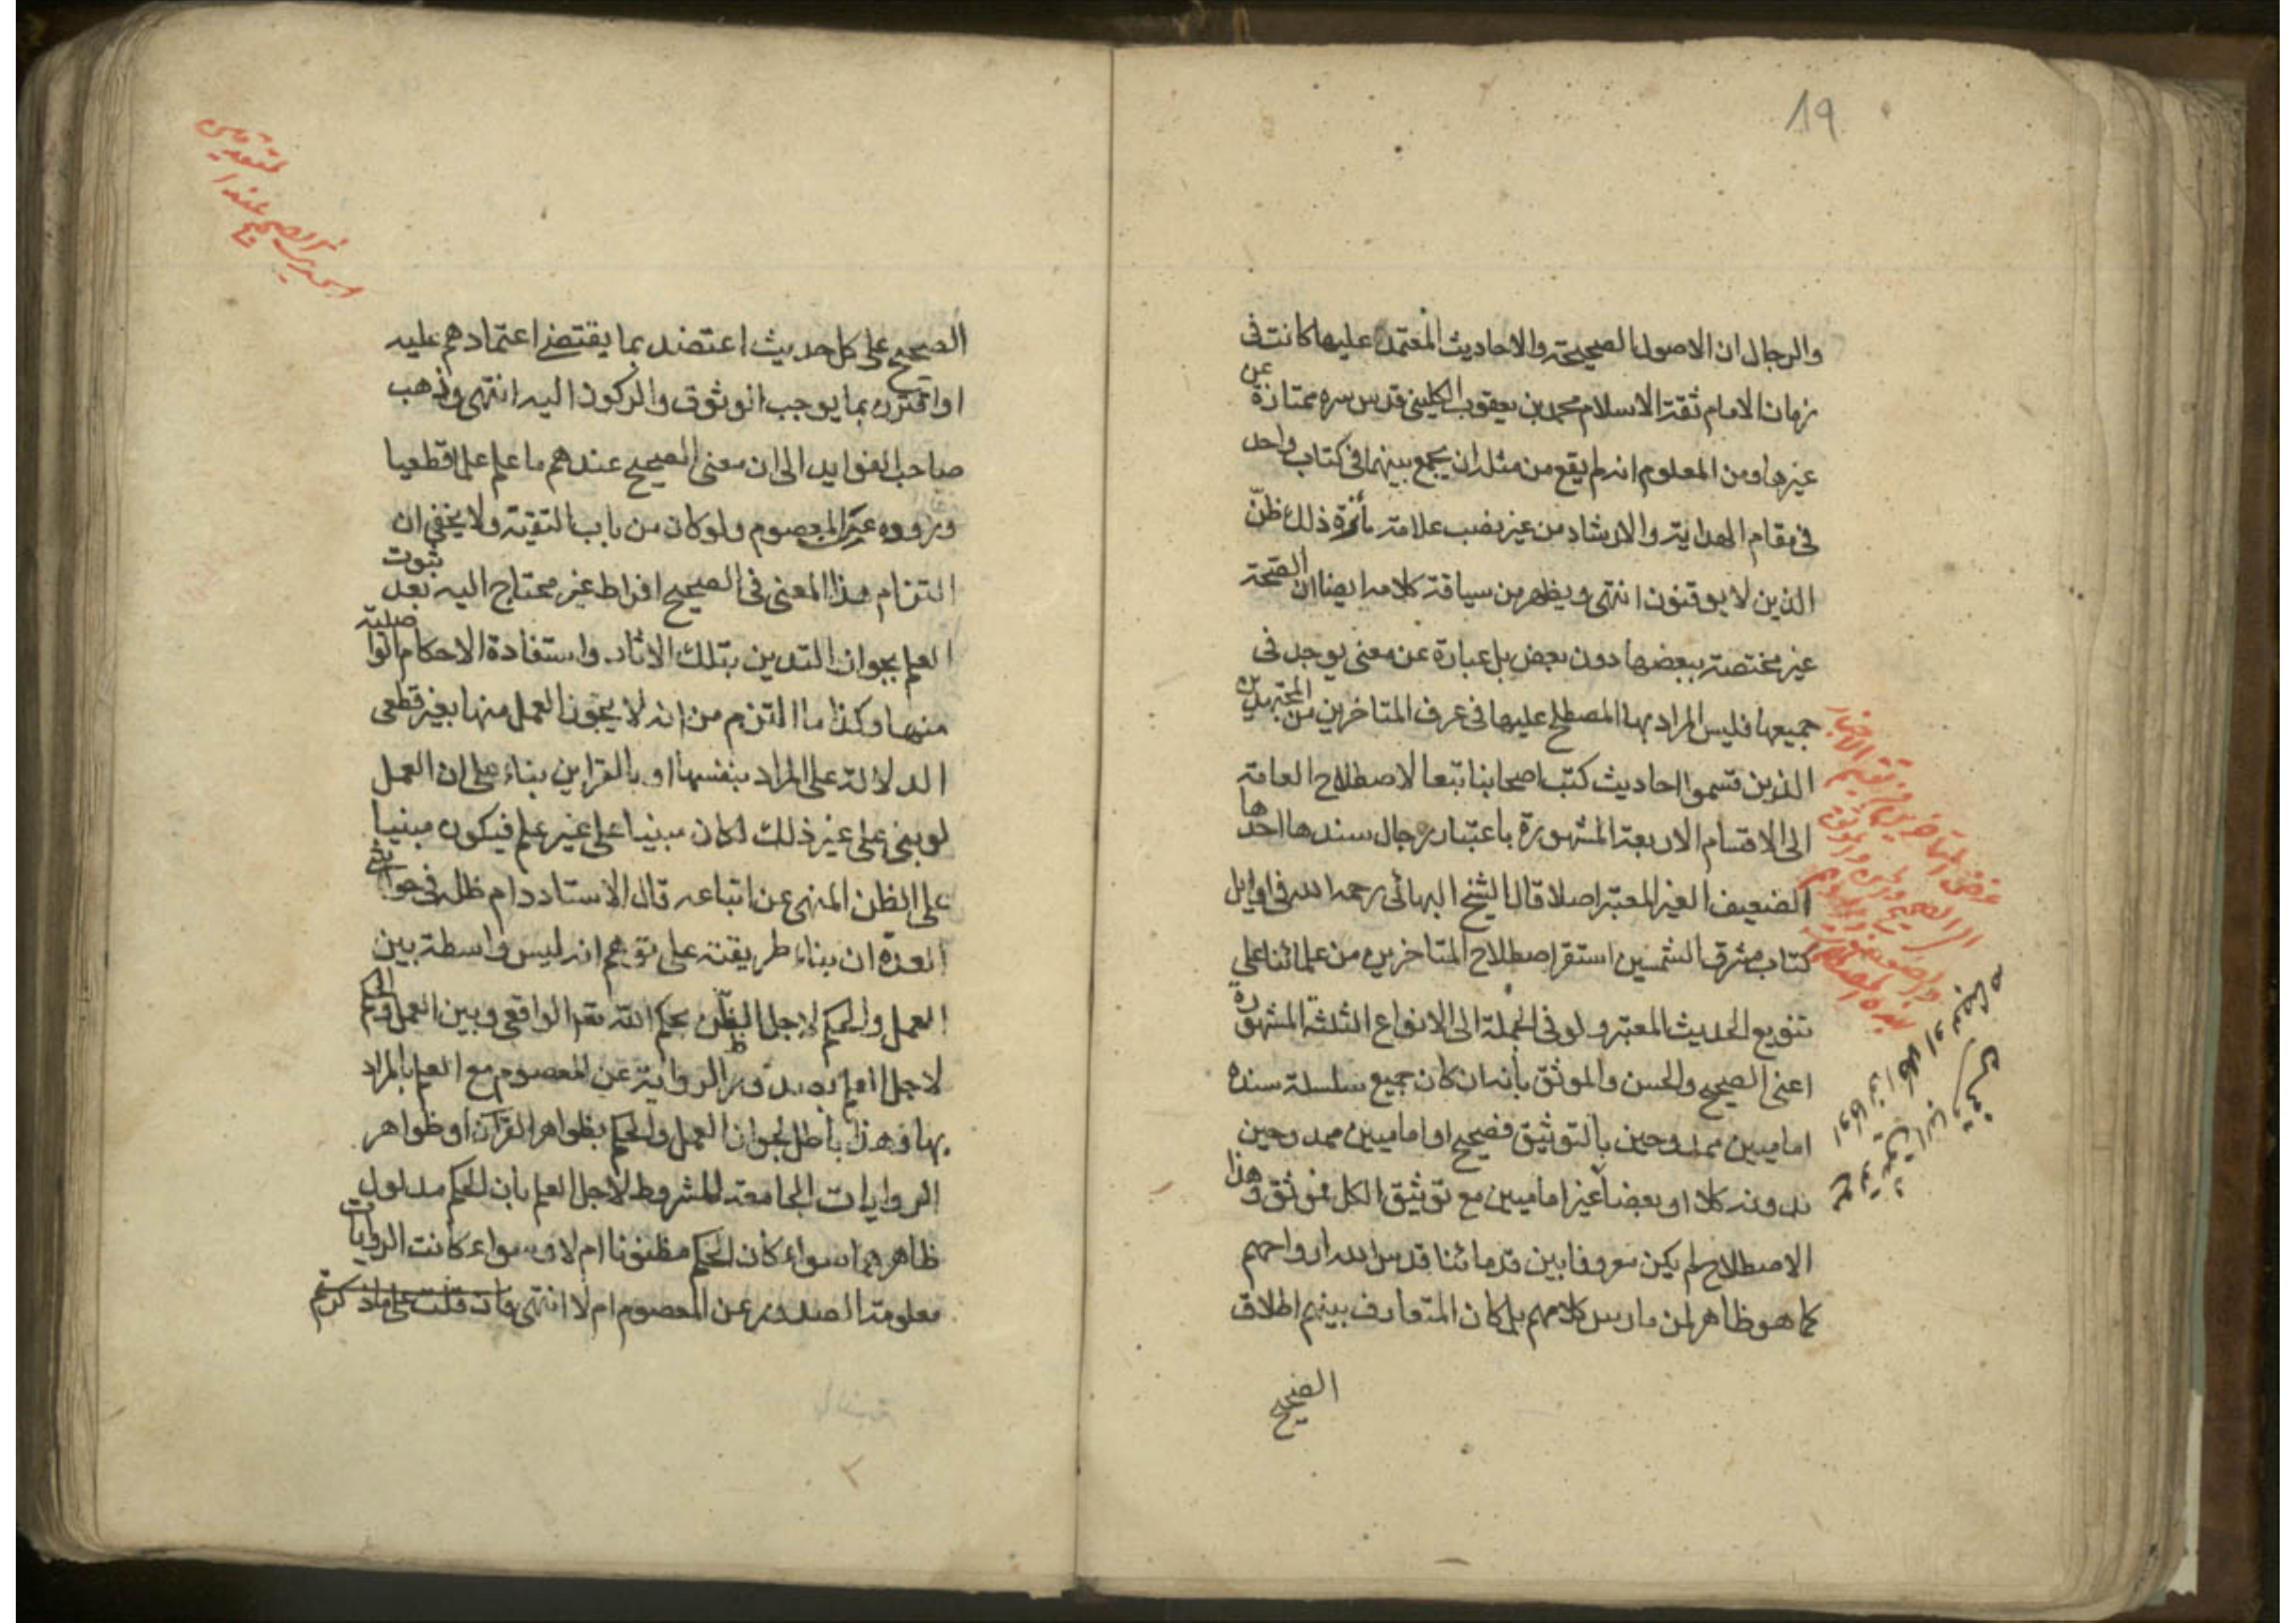 19
والرجال ان الاصول الصحيحة والاحاديث المعتمد عليها كانت فى
زمان الامام ثقة الاسلام محمد بن يعقوب الكلينى قدس سره ممتازة عن
غيرها ومن المعلوم انه لم يقع من مثله ان يجمع بينهما فى كتاب واحد
فى مقام الهداية والارشاد من غير نصب علامة مائزة ذلك ظنّ
الذين لا يوقنون انتهى ويظهر من سياقة كلامه ايضا ان الصحة
غير مختصة ببعضها دون بعض بل عبارة عن معنى يوجد فى
جميعها فليس المراد بها المصطلح عليها فى عرف المتاخرين من المجتهدين
الذين قسموا احاديث كتب اصحابنا تبعا لاصطلاح العامة
الى الاقسام الاربعة المشهورة باعتبار رجال سندها احدها
الضعيف الغير المعتبر اصلا قال الشيخ البهائى رحمه الله فى اوايل
كتاب مشرق الشمسين استقر اصطلاح المتاخرين من علمائنا على
تنويع الحديث المعتبر ولو فى الجملة الى الانواع الثلثة المشهورة
اعنى الصحيح والحسن والموثق بانه ان كان جميع سلسلة سنده
اماميين ممدوحين بالتوثيق فصحيح او اماميين ممدوحين
بدونه كلا او بعضا غير اماميين مع توثيق الكل فموثق وهذا
الاصطلاح لم يكن معروفا بين قدمائنا قدس الله ارواحهم
كما هو ظاهر لمن مارس كلامهم بل كان المتعارف بينهم اطلاق
الصحيح
الصحيح على كل حديث اعتضد بما يقتضى اعتمادهم عليه
او اقترن بما يوجب الوثوق والركون اليه انتهى وذهب
صاحب الفوايد الى ان معنى الصحيح عندهم ما علم علما قطعيا
وروده عن المعصوم ولو كان من باب التقية ولا يخفى ان
التزام هذا المعنى فى الصحيح افراط غير محتاج اليه بعد ثبوت
العلم بجواز التدين بتلك الاثار واستفادة الاحكام الواصلية
منها وكذا ما التزم من انه لا يجوز العمل منها بغير قطعى
الدلالة على المراد بنفسها او بالقراين بناء على ان العمل
لو بنى على غير ذلك لكان مبنيا على غير علم فيكون مبنيا
على الظن المنهى عن اتباعه قال الاستاد دام ظله فى حواشى
العدة ان بناء طريقته على توهم انه ليس واسطة بين
العمل والحكم لاجل الظن بحكم الله تعم الواقعى وبين العمل والحكم
لاجل العلم بصدور الرواية عن المعصوم مع العلم بالمراد
بها فهذا باطل لجواز العمل والحكم بظواهر القرآن او ظواهر
الروايات الجامعة للشروط لاجل العلم بان الحكم مدلول
ظاهرهما سواء كان الحكم مظنونا ام لا وسواء كانت الروايات
معلومة الصدور عن المعصوم ام لا انتهى فان قلت على ما ذكرتم